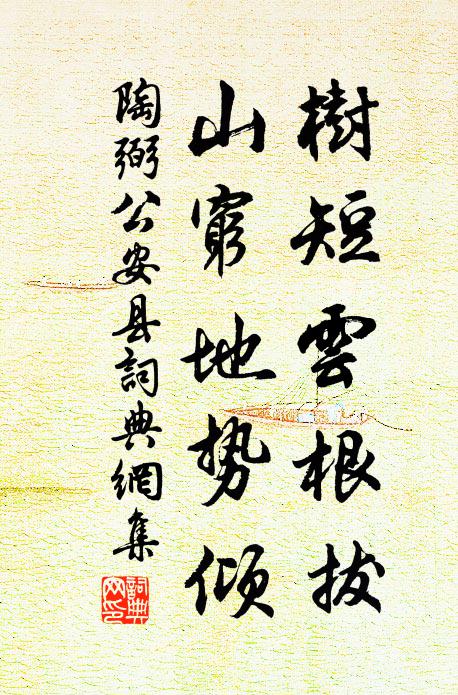 樹短雲根拔
山窮地势傾
陶弼公安县詞典網集
詞典
网印